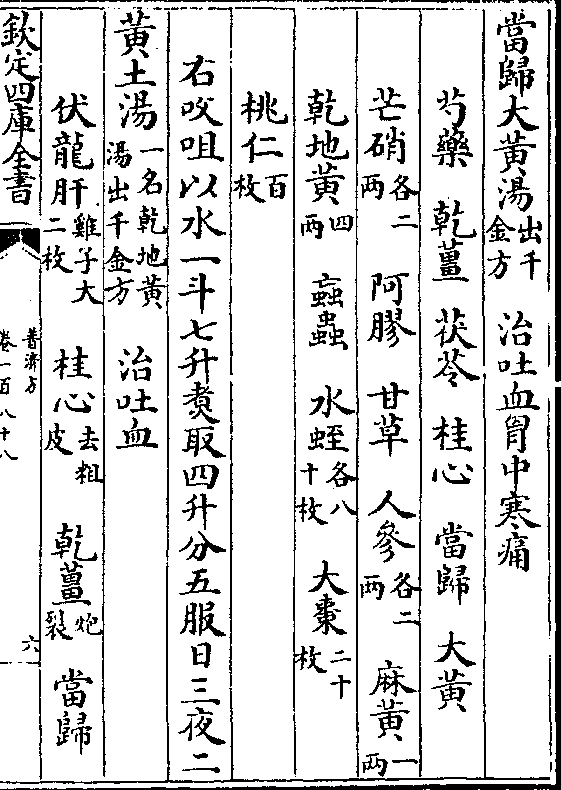 當歸大黄湯出千金方 治吐血胷中寒痛
芍藥 乾薑 茯苓 桂心 當歸 大黄
芒硝各二兩 阿膠 甘草 人參各二兩 麻黄一兩
乾地黄四兩 蝱蟲 水蛭各八十枚 大棗二十枚
桃仁百枚
右㕮咀以水一斗七升煑取四升分五服日三夜二
黄土湯一名乾地黄湯出千金方 治吐血
伏龍肝雞子大二枚 桂心去粗皮 乾薑炮裂 當歸
欽定四庫全書
普濟方
卷一百八十八
六